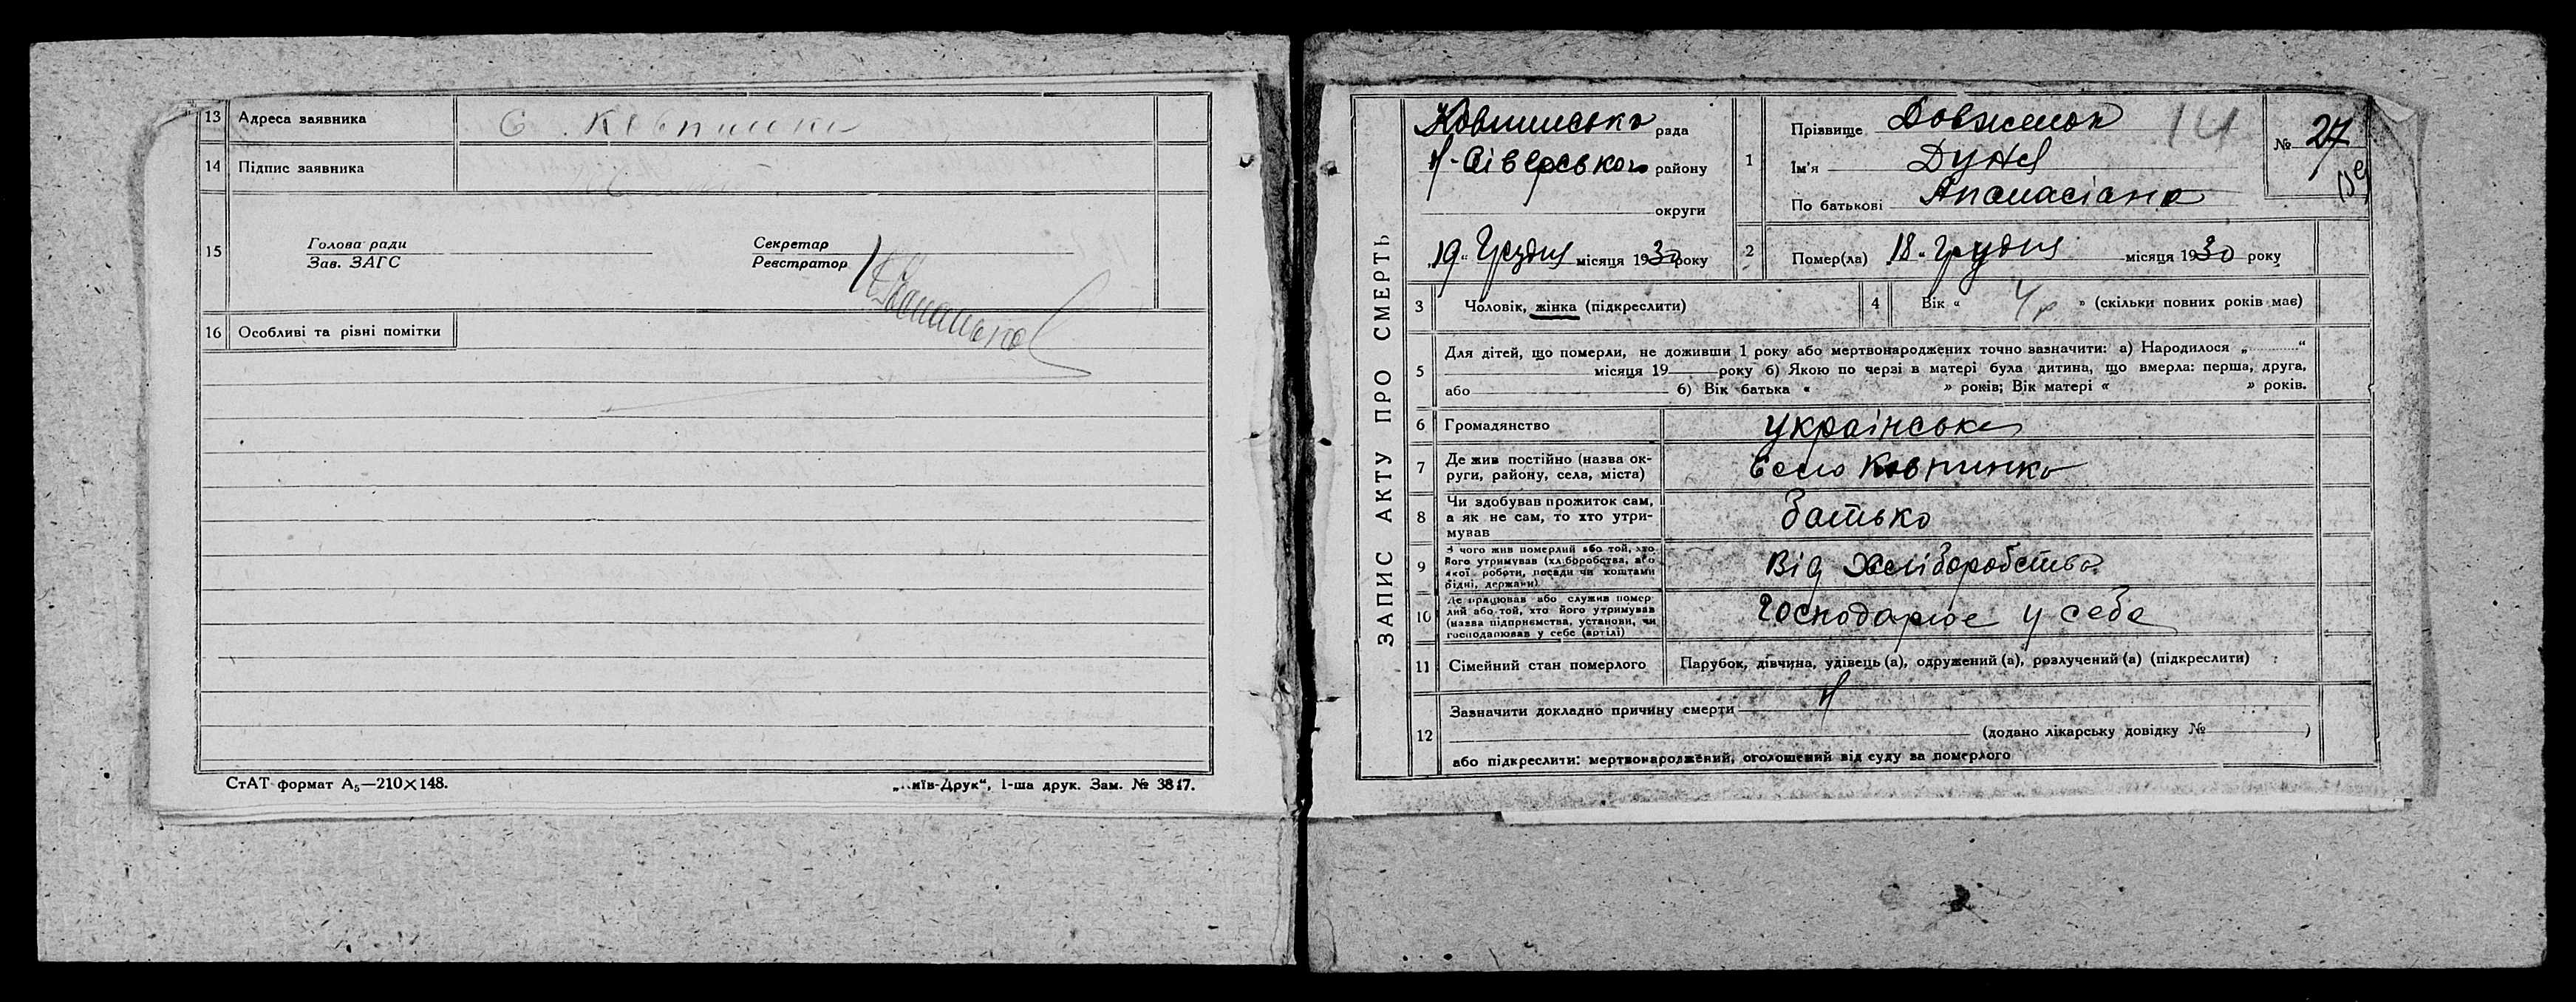 13 Адреса заявника с. Ковпинка
14 Підпис заявника
15 Голова ради
Зав. ЗАГС
Секретар
Реєстратор
16 Особливі та різні помітки
СтАТ формат А₅—210×148.
„Київ-Друк“, 1-ша друк. Зам. № 3817.
ЗАПИС АКТУ ПРО СМЕРТЬ
Ковпинська рада
Н-Сіверського району
округи
„19“ Грудня місяця 1930 року
1 Прізвище Довженок 14
Ім'я Дуня
По батькові Апанасівна
№ 27
139
2 Помер(ла) 18 „Грудня місяця 1930 року
3 Чоловік, жінка (підкреслити)
4 Вік « 4 р » (скільки повних років має)
5 Для дітей, що померли, не доживши 1 року або мертвонароджених точно зазначити: а) Народилося „ “
місяця 19 року б) Якою по черзі в матері була дитина, що вмерла: перша, друга,
або б) Вік батька « » років; Вік матері « » років.
6 Громадянство українська
7 Де жив постійно (назва ок-
руги, району, села, міста) село Ковпинка
8 Чи здобував прожиток сам,
а як не сам, то хто утри-
мував батько
9 З чого жив померлий або той, хто
його утримував (хліборобства, або
якої роботи, посади чи коштами
рідні, держави) Від хліборобства
10 Де працював або служив помер
лий або той, хто його утримував
(назва підприємства, установи, чи
господарював у себе (артілі) Господарює у себе
11 Сімейний стан померлого Парубок, дівчина, удівець (а), одружений (а), розлучений (а) (підкреслити)
12 Зазначити докладно причину смерти Н
(додано лікарську довідку № )
або підкреслити: мертвонароджений, оголошений від суду за померлого